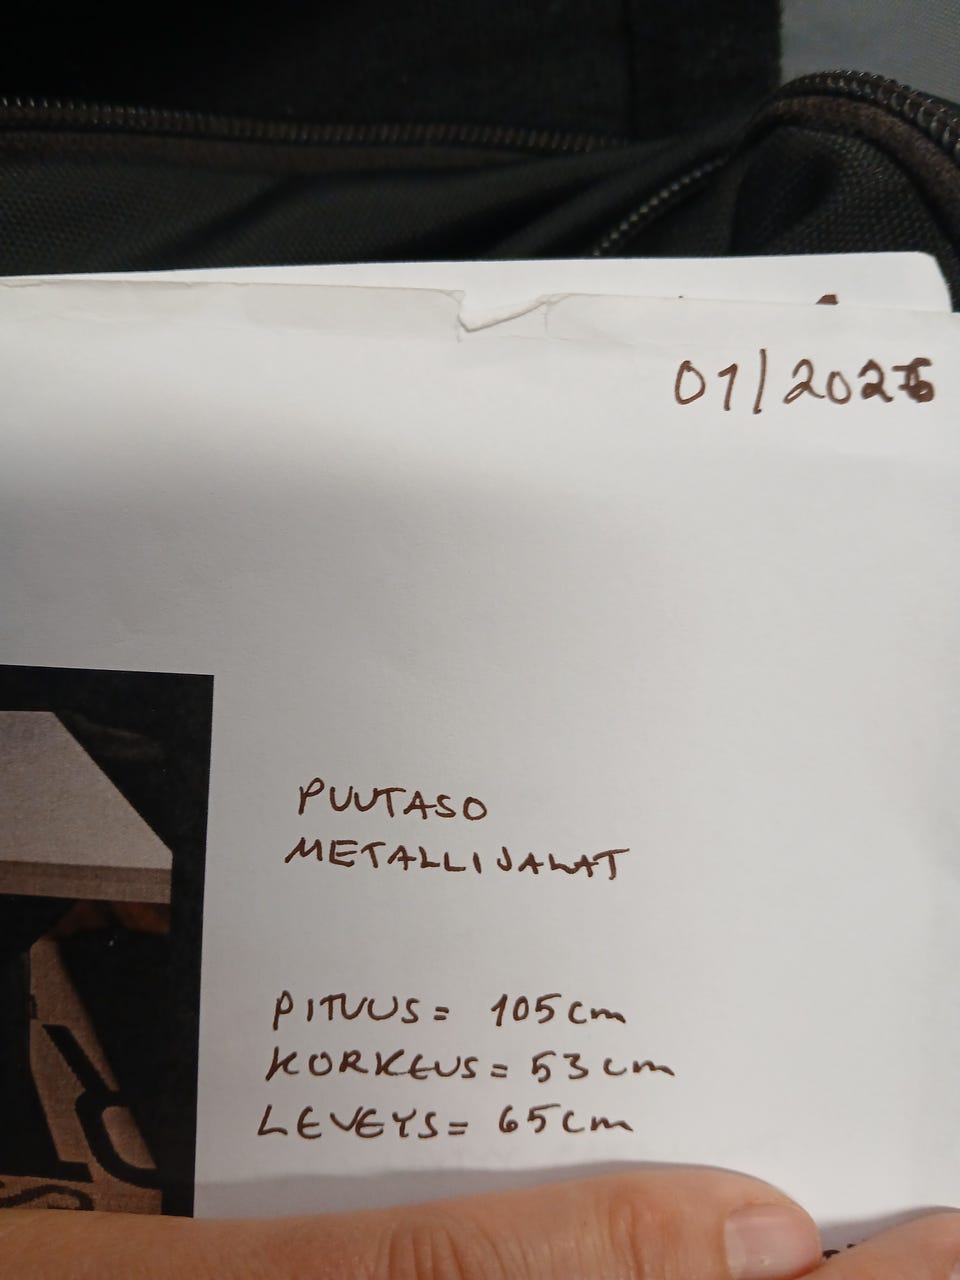 01/2026
PUUTASO
METALLIJALAT
PITUUS = 105cm
KORKEUS = 53cm
LEVEYS = 65cm